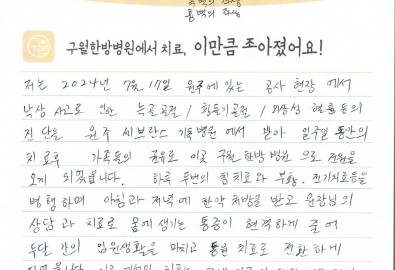 흉벽의 좌상
구월한방병원에서 치료, 이만큼 조아졌어요!
저는 2024년 7월 17일 원주에 있는 공사 현장 에서
낙상 사고로 인한 늑골골절 / 횡돌기골절 / 외상성 혈흉 등의
진단을 원주 세브란스 기독병원 에서 받아 일주일 동안의
치료후 가족들의 권유로 이곳 구월한방병원 으로 전원을
오게 되었읍니다. 하루 두번의 침치료와 부항. 전기치료등을
병행하며 아침과 저녁에 한약 처방을 받고 원장님의
상담과 치료로 몸에 생기는 통증이 현격하게 줄어
두달 간의 입원생활을 마치고 통원 치료로 전환하게